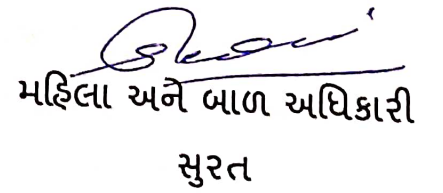 મહિલા અને બાળ અધિકારી
સુરત